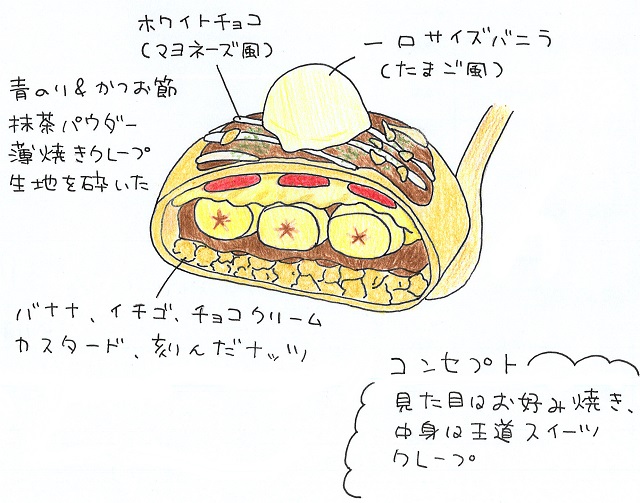 ホワイトチョコ
(マヨネーズ風)
一口サイズバニラ
(たまご風)
青のり&かつお節
抹茶パウダー
薄焼きクレープ
生地を砕いた
バナナ、イチゴ、チョコクリーム
カスタード、刻んだナッツ
コンセプト
見た目はお好み焼き、
中身は王道スイーツ
クレープ